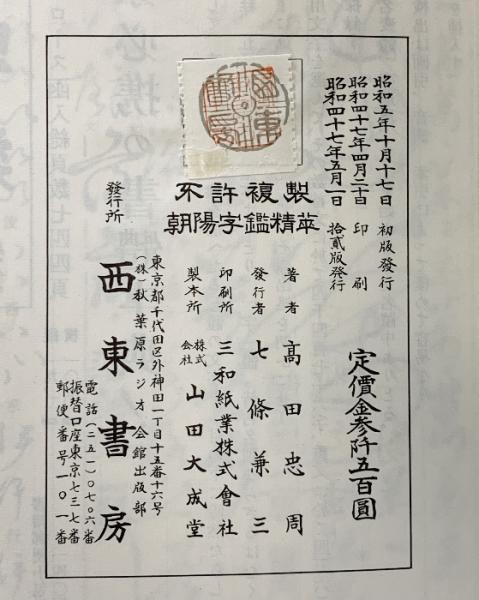 昭和五年十月十七日 初版發行
昭和四十七年四月二十日 印刷
昭和四十七年五月一日 拾貳版發行
定價金參阡五百圓
不許複製
朝陽字鑑精萃
著者 高田忠周
發行者 七條兼三
印刷所 三和紙業株式會社
製本所 株式会社 山田大成堂
發行所
東京都千代田区外神田一丁目十五番十六号
(株)秋葉原ラジオ会館出版部
西東書房
電話(二五一)〇七〇六番
振替口座東京七三七番
郵便番号一〇一番